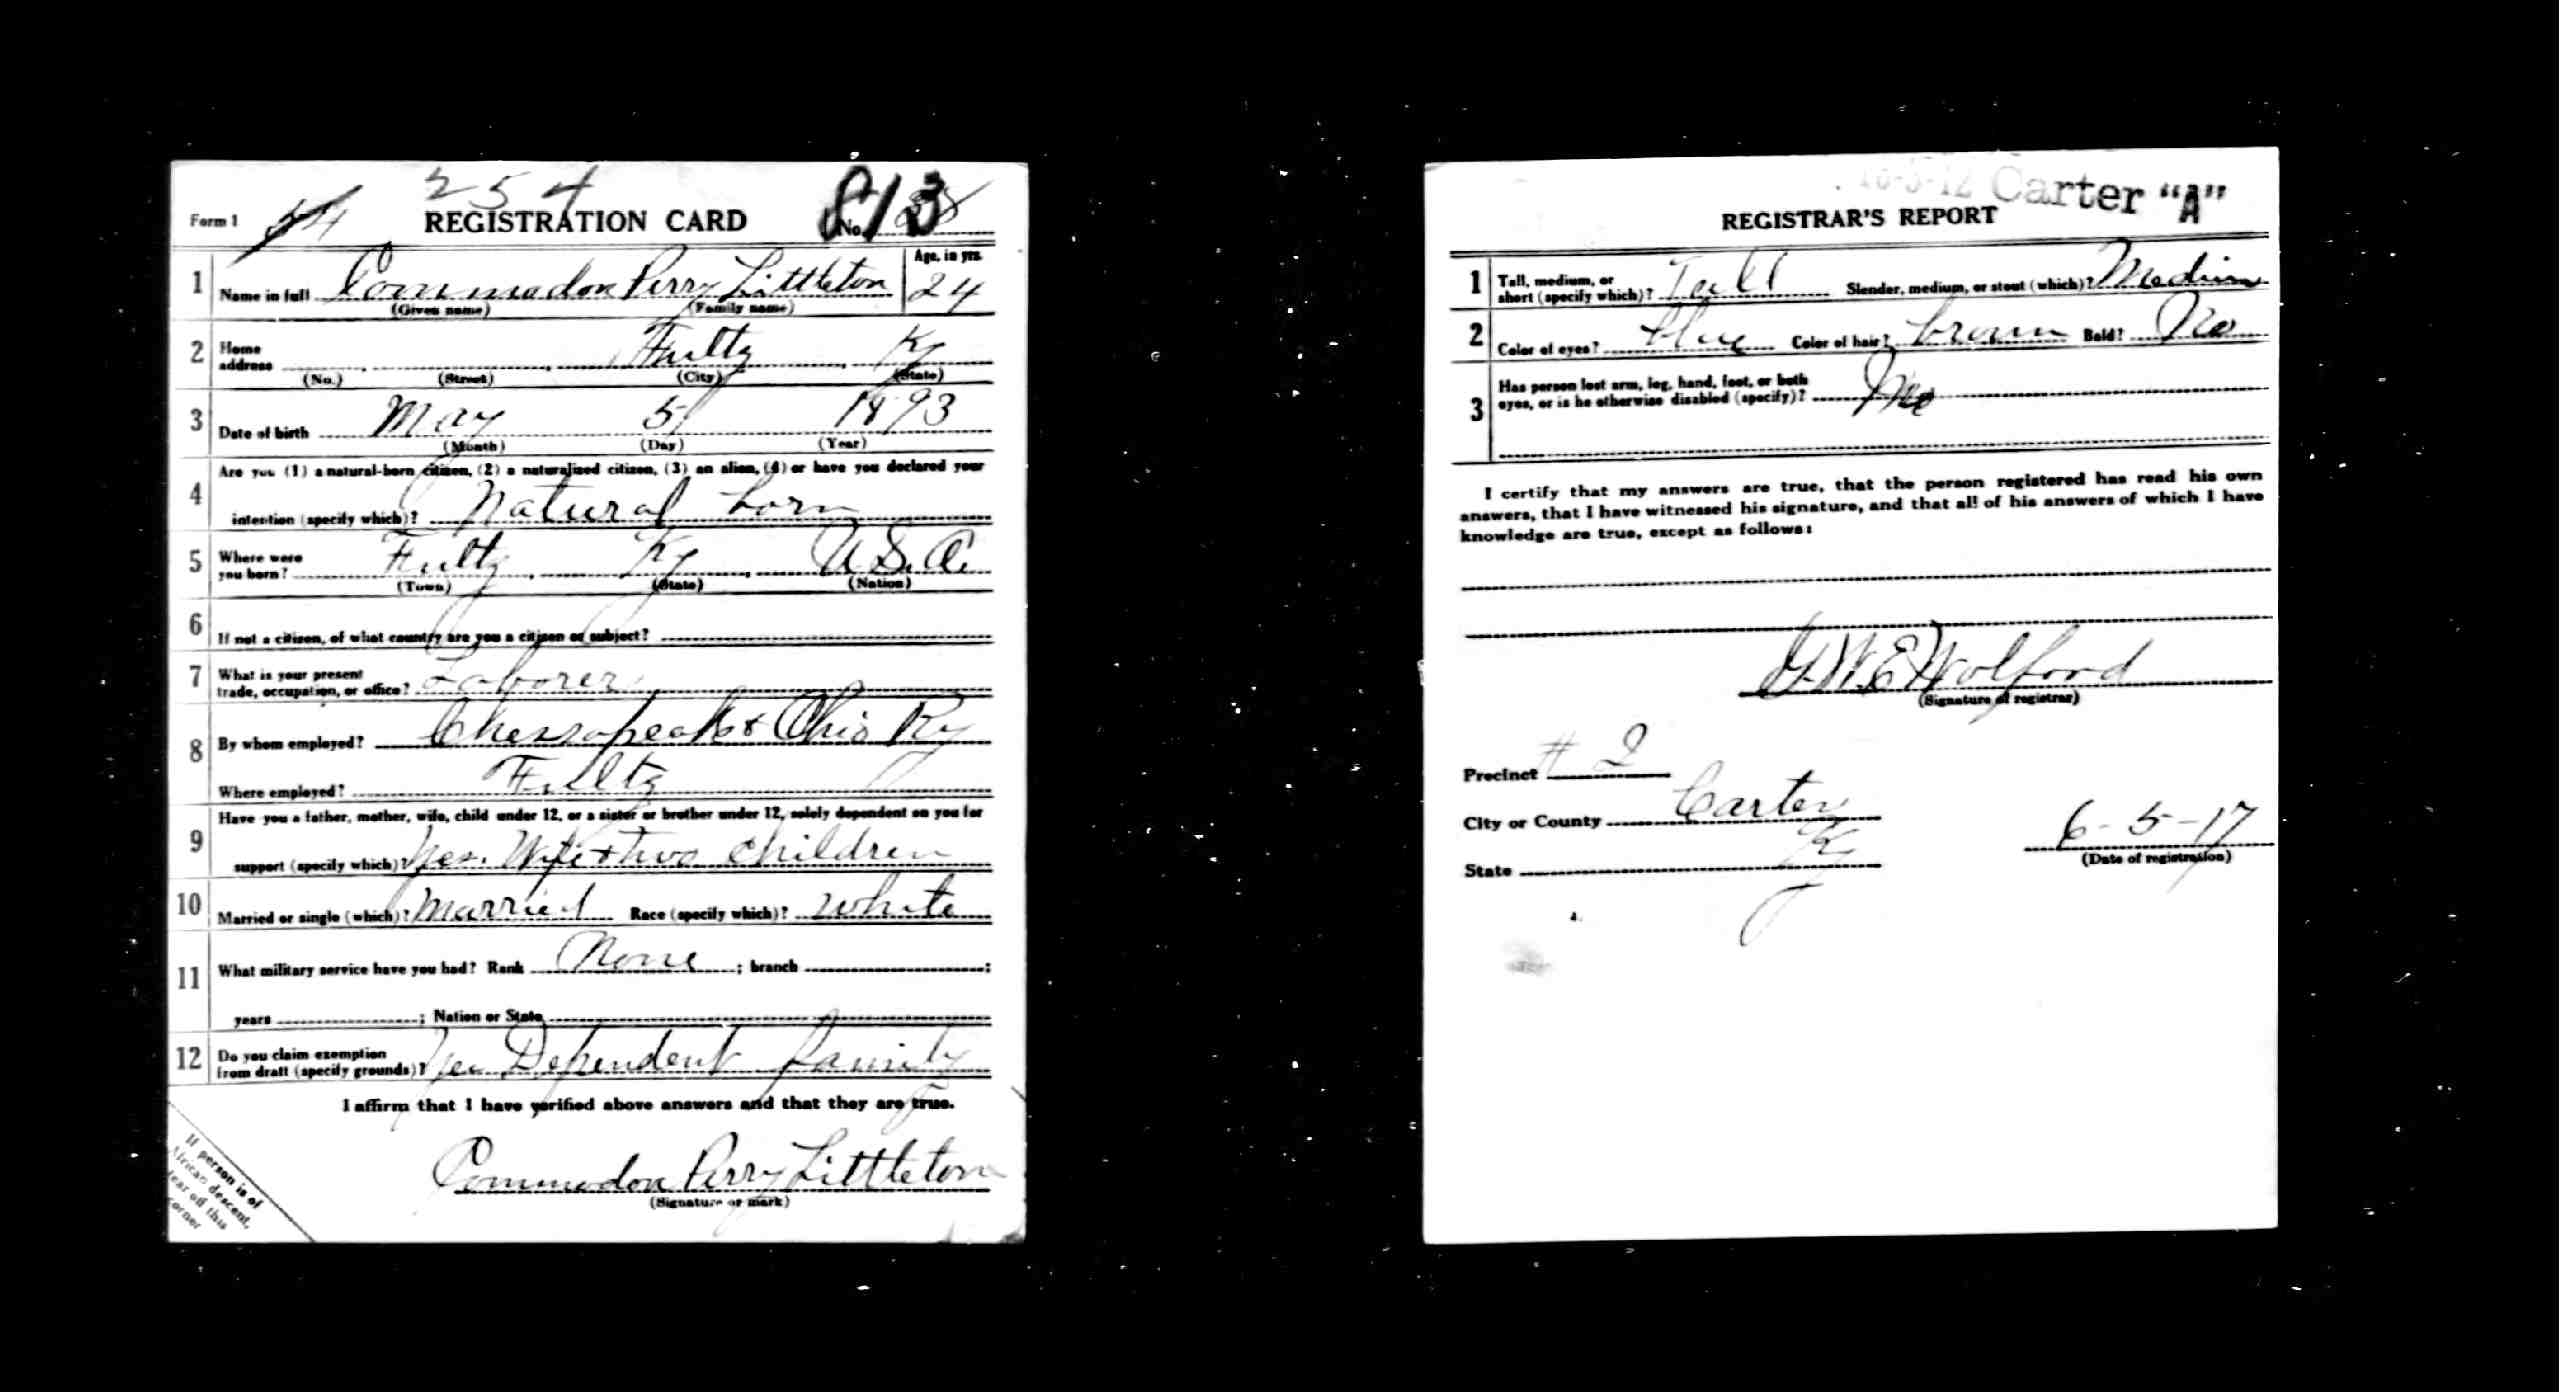 254
813
Form 1 54 REGISTRATION CARD No.
1 Name in full Commodon Perry Littleton Age, in yrs. 24
(Given name) (Family name)
2 Home address Fultz Ky
(No.) (Street) (City) (State)
3 Date of birth May 5 1893
(Month) (Day) (Year)
4 Are you (1) a natural-born citizen, (2) a naturalized citizen, (3) an alien, (4) or have you declared your
intention (specify which)? Natural born
5 Where were you born? Fultz Ky U.S.A.
(Town) (State) (Nation)
6 If not a citizen, of what country are you a citizen or subject?
7 What is your present trade, occupation, or office? Laborer
8 By whom employed? Chesapeake & Ohio Ry
Where employed? Fultz
9 Have you a father, mother, wife, child under 12, or a sister or brother under 12, solely dependent on you for
support (specify which)? Yes. Wife & two children
10 Married or single (which)? Married Race (specify which)? White
11 What military service have you had? Rank None ; branch ;
years ; Nation or State
12 Do you claim exemption from draft (specify grounds)? Yes Dependent family
I affirm that I have verified above answers and that they are true.
Commodon Perry Littleton
(Signature or mark)
If person is of
African descent,
tear off this
corner
16-3-12 Carter "A"
REGISTRAR'S REPORT
1 Tall, medium, or short (specify which)? Tall Slender, medium, or stout (which)? Medium
2 Color of eyes? blue Color of hair? brown Bald? No
3 Has person lost arm, leg, hand, foot, or both
eyes, or is he otherwise disabled (specify)? No
I certify that my answers are true, that the person registered has read his own
answers, that I have witnessed his signature, and that all of his answers of which I have
knowledge are true, except as follows:
G.W.E. Wolfford
(Signature of registrar)
Precinct # 2
City or County Carter
State Ky
6-5-17
(Date of registration)